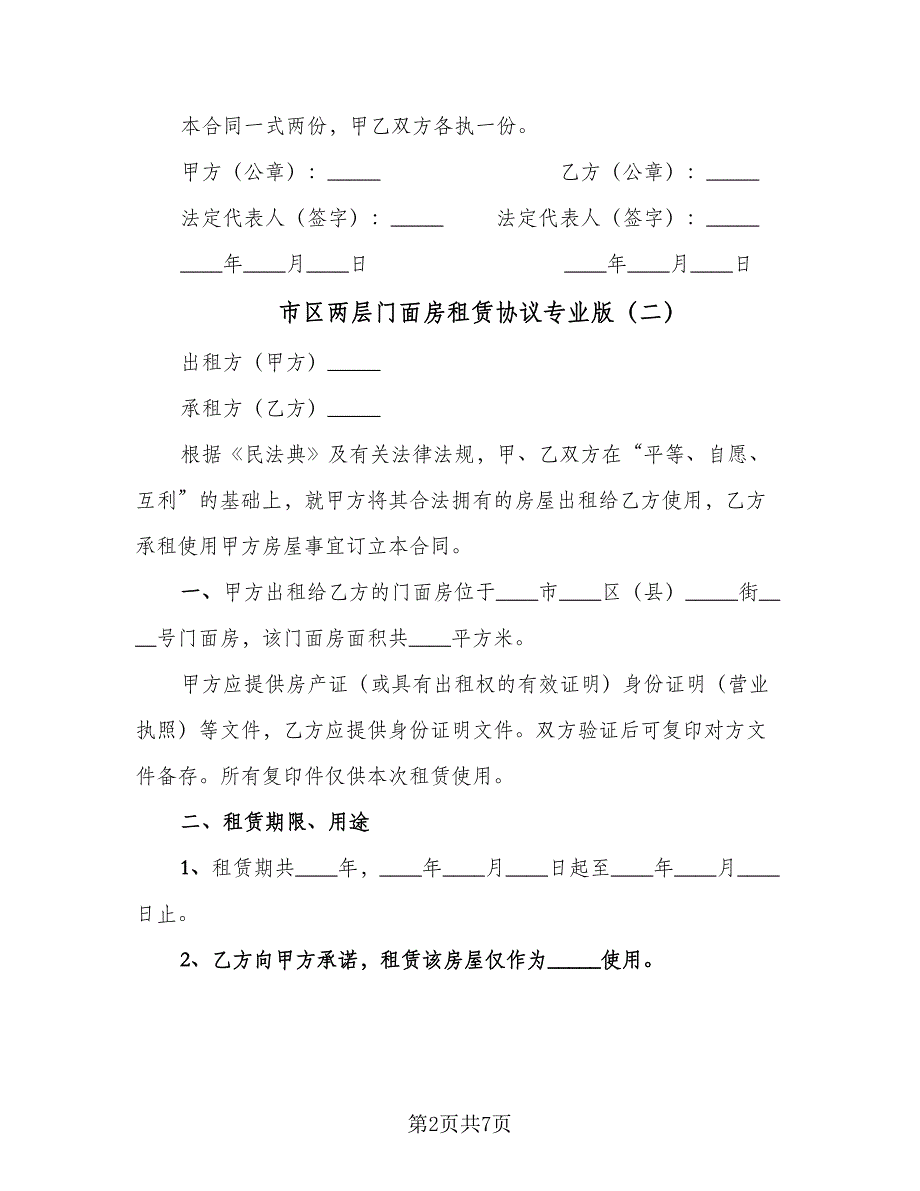 本合同一式两份，甲乙双方各执一份。
甲方（公章）：_____ 乙方（公章）：_____
法定代表人（签字）：_____ 法定代表人（签字）：_____
____年____月____日 ____年____月____日
市区两层门面房租赁协议专业版（二）
出租方（甲方）_____
承租方（乙方）_____
根据《民法典》及有关法律法规，甲、乙双方在“平等、自愿、
互利”的基础上，就甲方将其合法拥有的房屋出租给乙方使用，乙方
承租使用甲方房屋事宜订立本合同。
一、甲方出租给乙方的门面房位于____市____区（县）_____街__
__号门面房，该门面房面积共____平方米。
甲方应提供房产证（或具有出租权的有效证明）身份证明（营业
执照）等文件，乙方应提供身份证明文件。双方验证后可复印对方文
件备存。所有复印件仅供本次租赁使用。
二、租赁期限、用途
1、租赁期共____年，____年____月____日起至____年____月____
日止。
2、乙方向甲方承诺，租赁该房屋仅作为_____使用。
第2页共7页